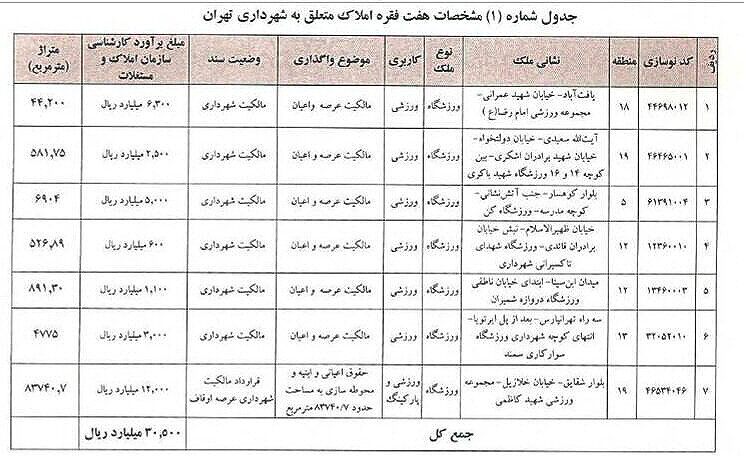 جدول شماره (۱) مشخصات هفت فقره املاک متعلق به شهرداری تهران
ردیف کد نوسازی منطقه نشانی ملک نوع ملک کاربری موضوع واگذاری وضعیت سند مبلغ برآورد کارشناسی سازمان املاک و مستغلات متراژ (مترمربع)
۱ ۴۴۶۹۸۰۱۲ ۱۸ یافت‌آباد- خیابان شهید عمرانی- مجموعه ورزشی امام رضا(ع) ورزشگاه ورزشی مالکیت عرصه و اعیان مالکیت شهرداری ۶,۳۰۰ میلیارد ریال ۴۴,۲۰۰
۲ ۴۶۴۶۵۰۰۱ ۱۹ آیت‌الله سعیدی- خیابان دولتخواه- خیابان شهید برادران اشکری- بین کوچه ۱۴ و ۱۶ ورزشگاه شهید باکری ورزشگاه ورزشی مالکیت عرصه و اعیان مالکیت شهرداری ۲,۵۰۰ میلیارد ریال ۵۸۱,۷۵
۳ ۶۱۳۹۱۰۰۴ ۵ بلوار کوهسار- جنب آتش‌نشانی- کوچه مدرسه- ورزشگاه کن ورزشگاه ورزشی مالکیت عرصه و اعیان مالکیت شهرداری ۵,۰۰۰ میلیارد ریال ۶۹۰۴
۴ ۱۲۳۶۰۰۱۰ ۱۲ خیابان ظهیرالاسلام- نبش خیابان برادران قائدی- ورزشگاه شهدای تاکسیرانی شهرداری ورزشگاه ورزشی مالکیت عرصه و اعیان مالکیت شهرداری ۶۰۰ میلیارد ریال ۵۲۶,۸۹
۵ ۱۳۴۶۰۰۰۳ ۱۲ میدان ابن‌سینا- ابتدای خیابان ناطقی ورزشگاه دروازه شمیران ورزشگاه ورزشی مالکیت عرصه و اعیان مالکیت شهرداری ۱,۱۰۰ میلیارد ریال ۸۹۱,۳۰
۶ ۳۲۰۵۲۰۱۰ ۱۳ سه راه تهرانپارس- بعد از پل ایرتویا- انتهای کوچه شهرداری ورزشگاه سوارکاری سمند ورزشگاه ورزشی مالکیت عرصه و اعیان مالکیت شهرداری ۳,۰۰۰ میلیارد ریال ۴۷۷۵
۷ ۴۶۵۳۴۰۴۶ ۱۹ بلوار شقایق- خیابان خلازیل- مجموعه ورزشی شهید کاظمی ورزشگاه ورزشی و پارکینگ حقوق اعیانی و ابنیه و محوطه سازی به مساحت حدود ۸۳۷۴۰/۷ مترمربع قرارداد مالکیت شهرداری عرصه اوقاف ۱۲,۰۰۰ میلیارد ریال ۸۳۷۴۰,۷
جمع کل ۳۰,۵۰۰ میلیارد ریال